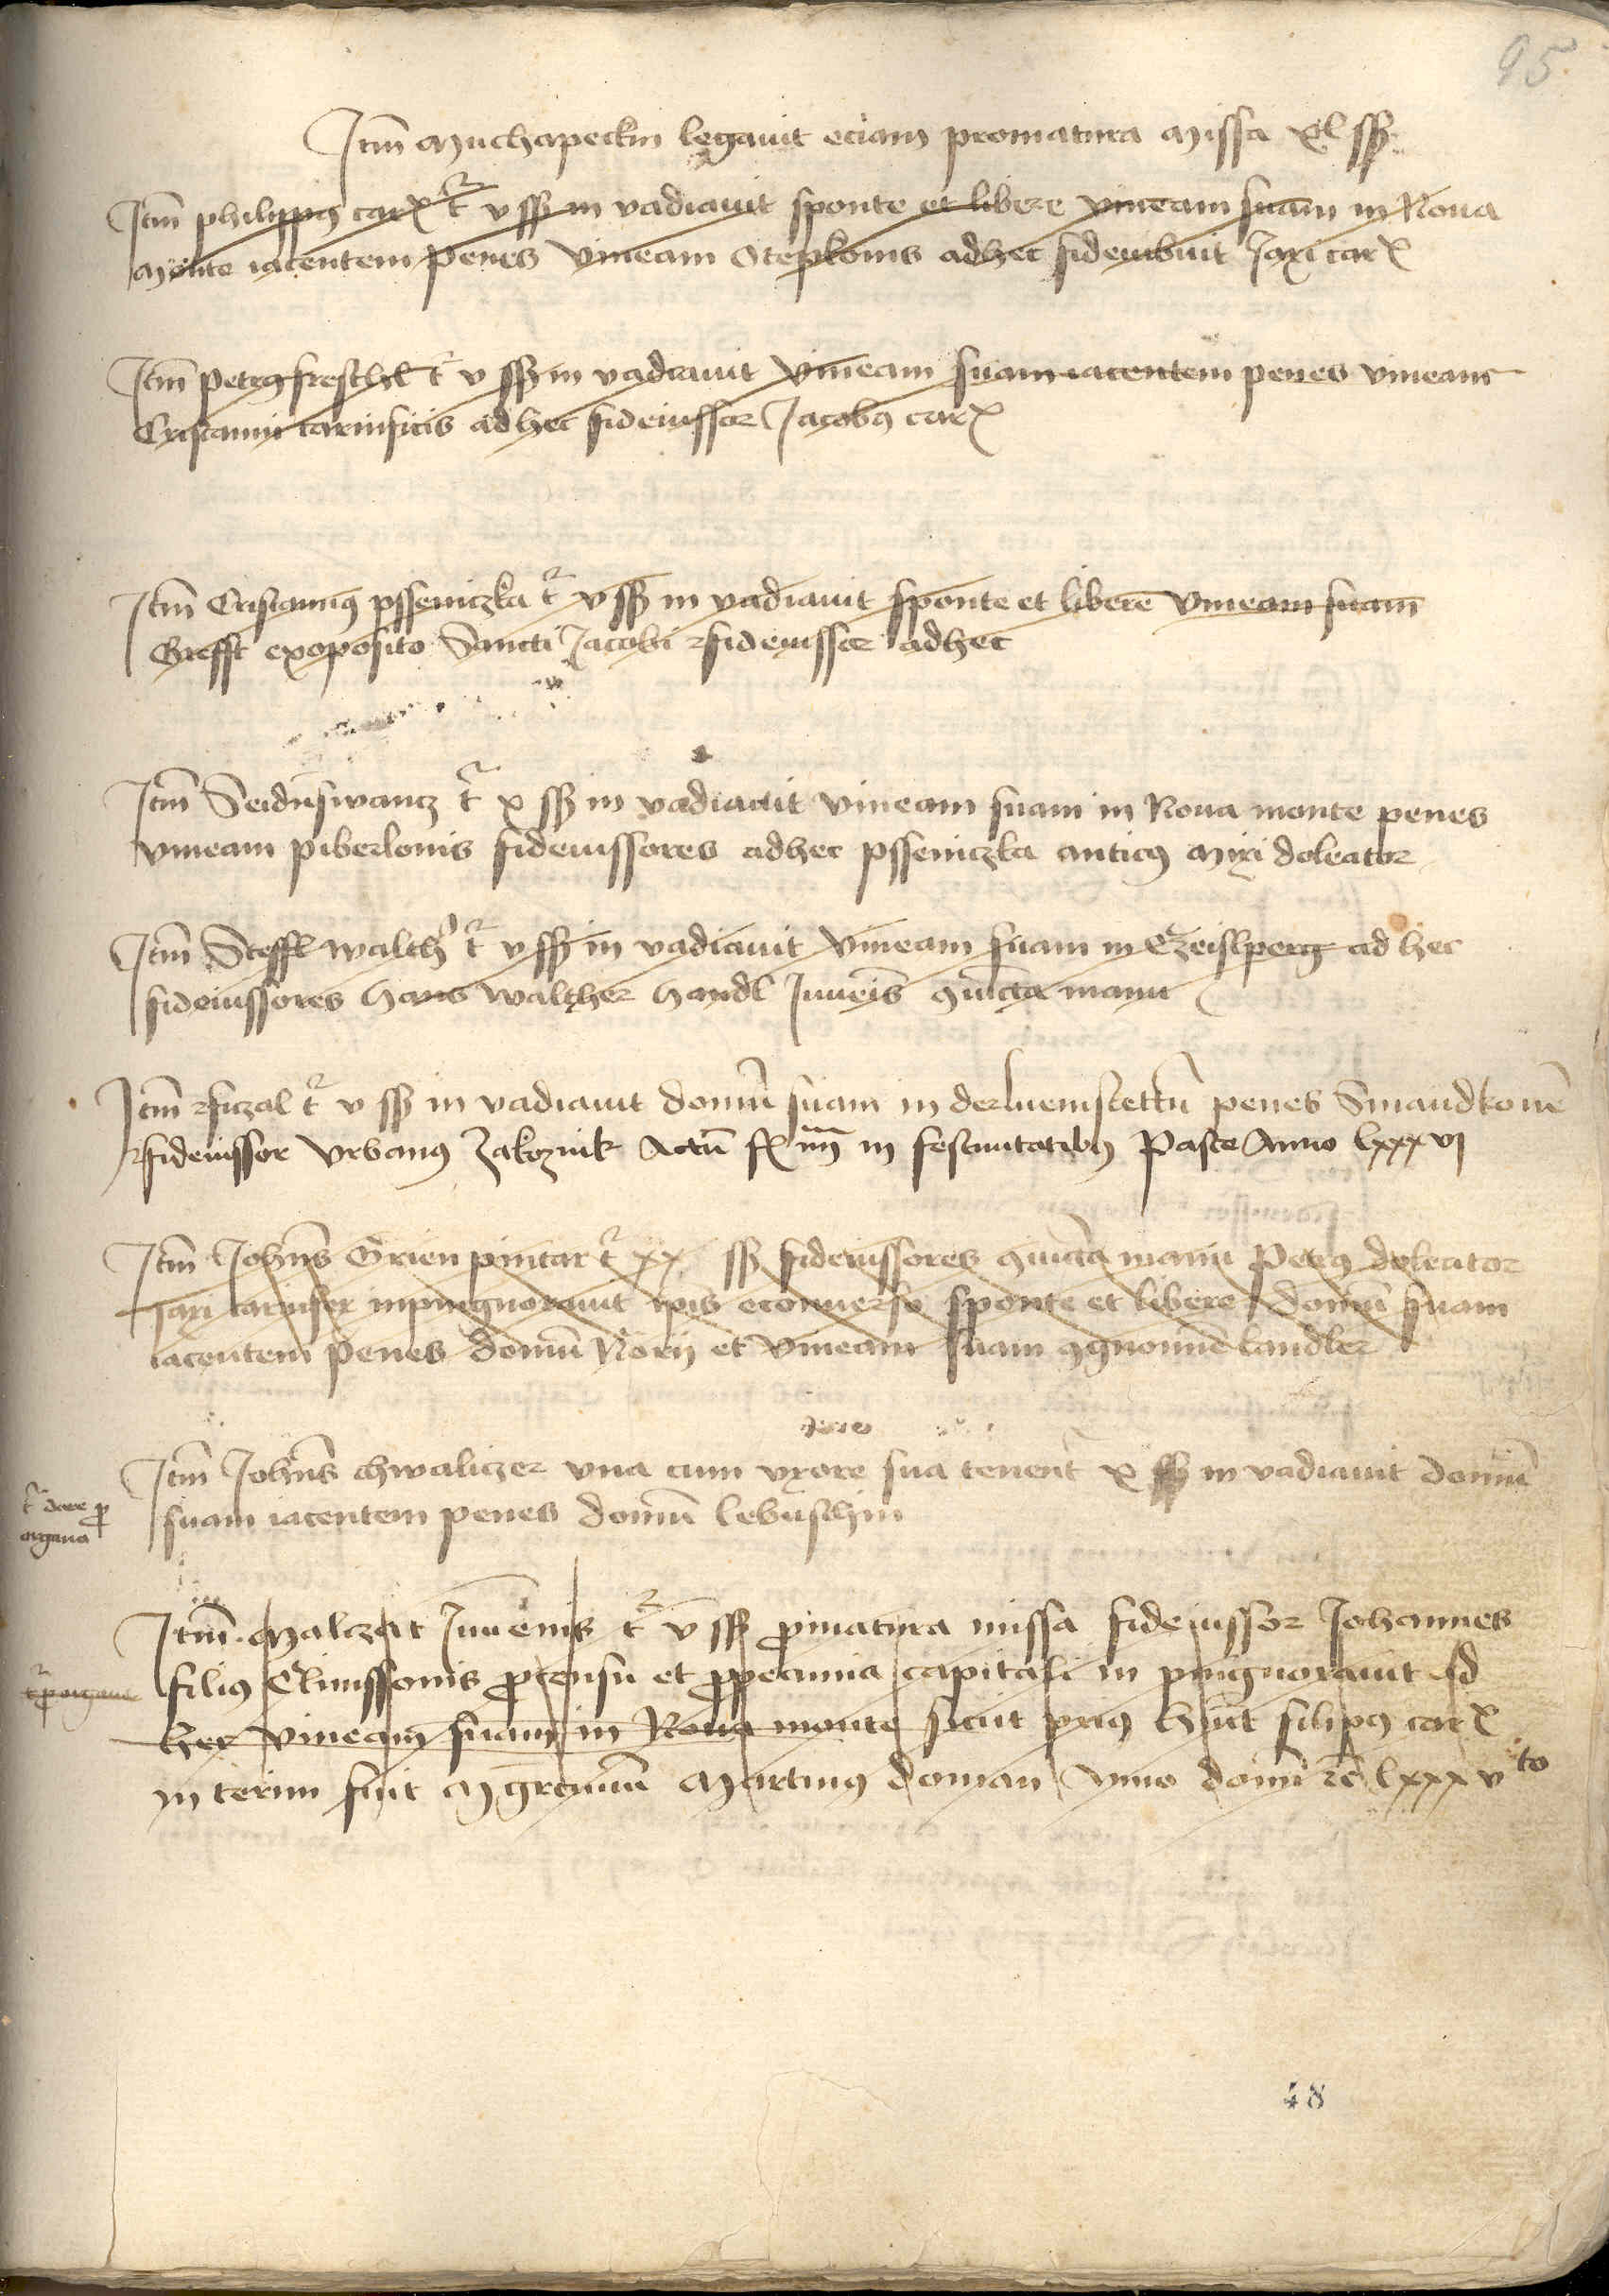 95
Itm̄ Muchapeckin legauit eciam promatura Missa xl ss
Itm̄ philippus carx tr v ss in vadiauit sponte et libere vineam suam in Noua
Monte iacentem penes vineam Stephonis adhec fideiubuit Jaxi carx
Itm̄ petrus freschl tr v ss in vadiauit vineam suam iacentem penes vineam
Cristanni carnificis adhec fideiussor Jacobus carx
Itm̄ Cristannus psseniczka tr v ss in vadiauit sponte et libere vineam suam
Grefft exoposito Sancti Jacobi fideiussor adhec
Itm̄ Seidnswancz tr x ss in vadiauit vineam suam in Noua monte penes
vineam piberlonis fideiussores adhec psseniczka anticus Mixi doleator
Itm̄ Steffl walther tr v ss in vadiauit vineam suam in Czeislperg ad hec
fideiussores Hans walther Haydl Juueīs 9iūcta manu
Itm̄ ficzal tr v ss in vadiauit domū suam in penes Smaudkonē
fideiussor Vrbanus Zakoznik Actū fx iiij in festiuitatibus Pasce Anno lxxxvj
Itm̄ John̄s Grien pintar tr xx ss fideiussores 9iūcta manu Petrus doleator
Jaxi carnifex inpingnorauit ip̄is econuerso sponte et libere domū suam
iacentem penes domū Norij et vineam suam 9gnomīe landler
Itm̄ John̄s chwaliczer vna cum vxore sua tenent̄ x ss in vadiauit domū
suam iacentem penes domū lebuschin
tr dare pro
organa
Itm̄ Malczat Juuenis tr v ss promatura missa fideiussor Johannes
filius Climssonis procensu et propecunia capitali in pingnorauit ad
tr pro organa
hec vineam suam in Noua monte sicut prius hūit filipus carx
in terim fuit Mgr̄ciuiū Martinus doman Anno domī rē lxxxvto
48